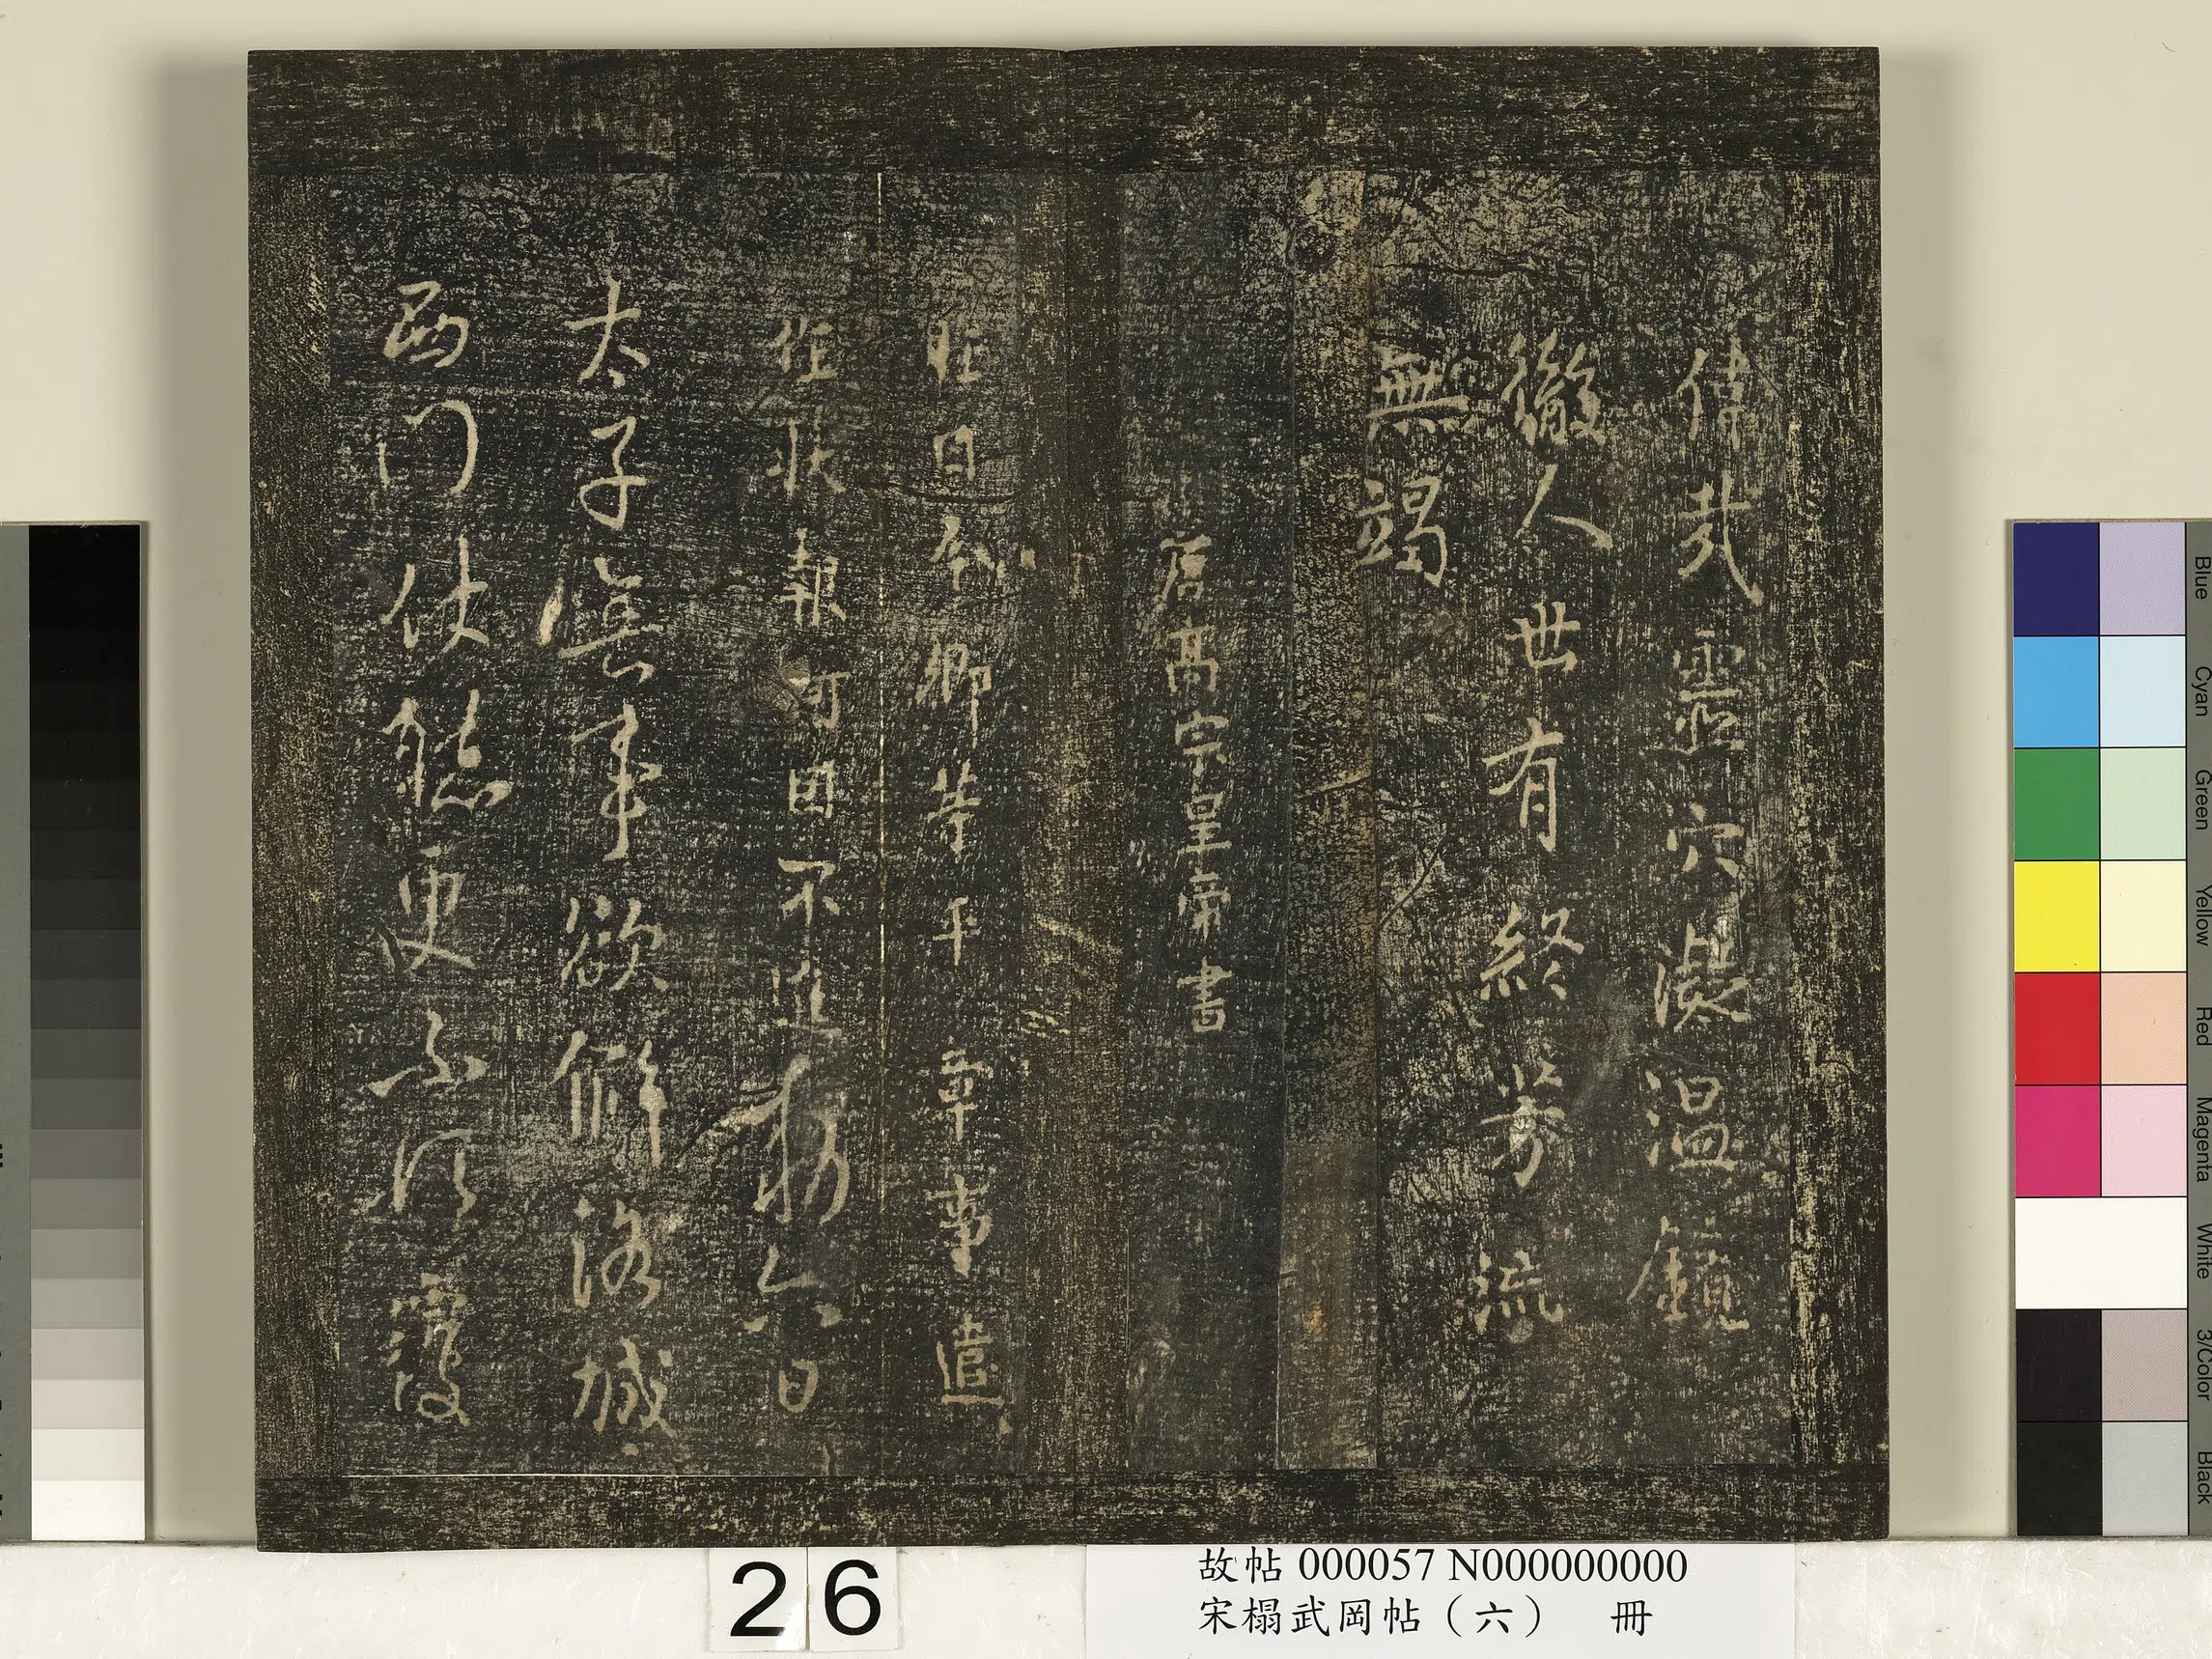 偉哉靈穴凝溫鏡
徹人世有終芳流
無竭
唐高宗皇帝書
昨日卿等平章事遣
報可因不進六日
太子無事欲解洛城
西門仗聽更不須覆
26
故帖 000057 N000000000
宋榻武岡帖（六） 冊
Blue
Cyan
Green
Yellow
Red
Magenta
White
3/Color
Black